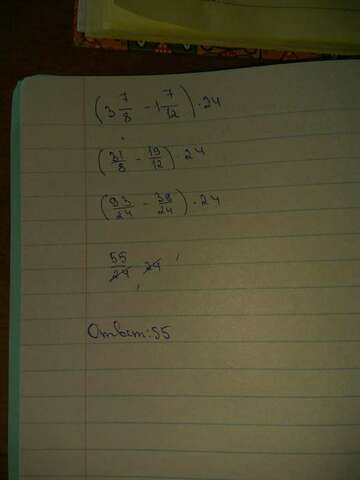 (3 7/8 - 1 7/12) · 24
(31/8 - 19/12) · 24
(93/24 - 38/24) · 24
55/24 · 24
Ответ: 55